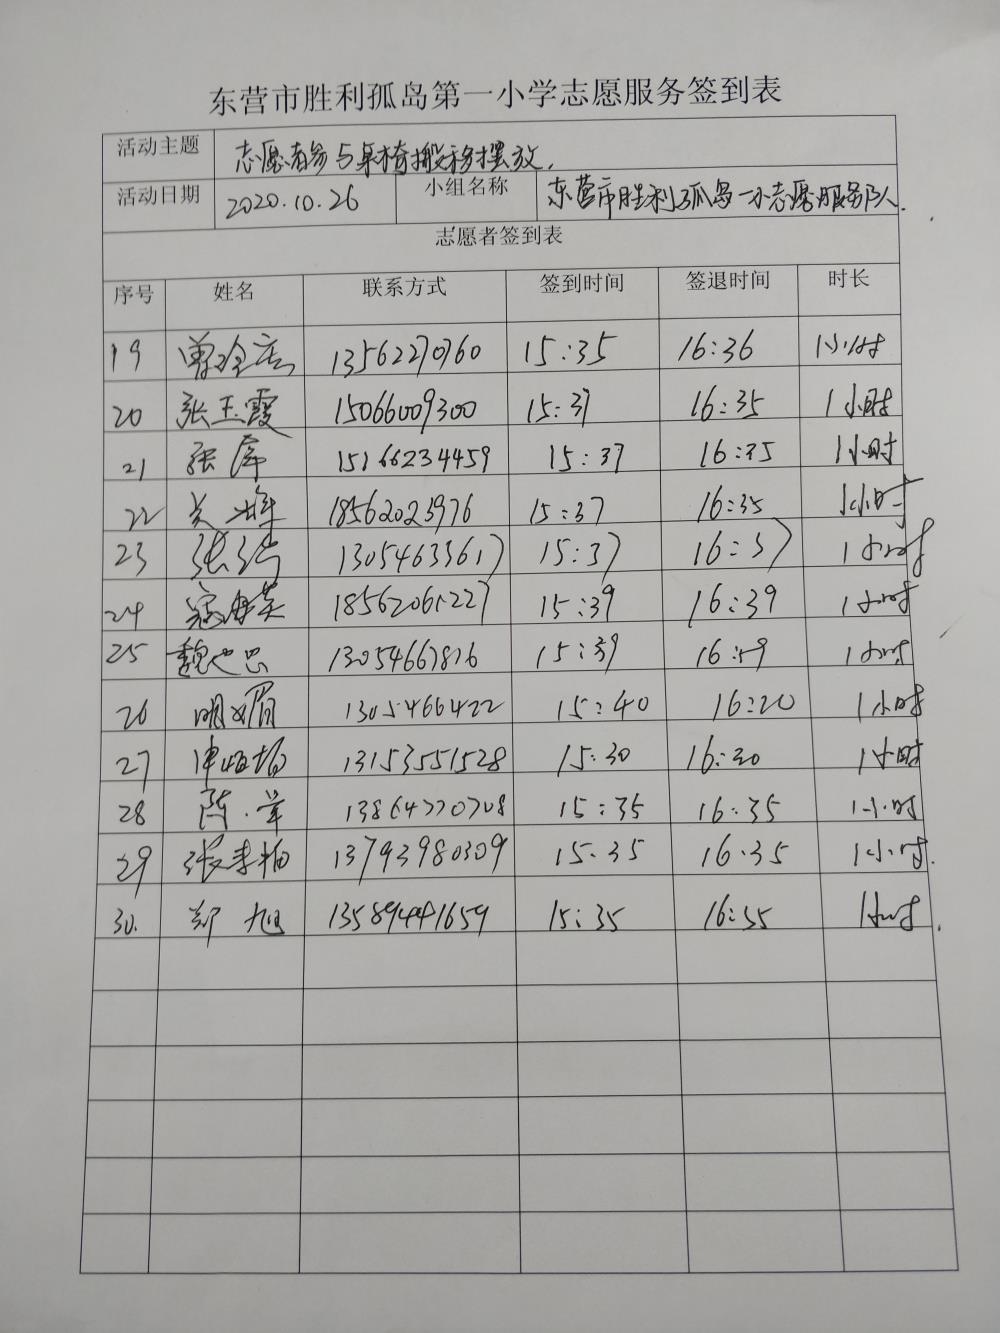 东营市胜利孤岛第一小学志愿服务签到表
活动主题 志愿者参与桌椅搬移摆放.
活动日期 2020.10.26 小组名称 东营市胜利孤岛一小志愿服务队.
志愿者签到表
序号 姓名 联系方式 签到时间 签退时间 时长
19 13562270760 15:35 16:36 1小时
20 张玉霞 15066009300 15:37 16:35 1小时
21 张 15166234459 15:37 16:35 1小时
22 18562023976 15:37 16:35 1小时
23 张 13054633617 15:37 16:37 1小时
24 寇 18562061227 15:39 16:39 1小时
25 魏 13054667816 15:39 16:59 1小时
26 明 眉 1305466422 15:40 16:20 1小时
27 13153551528 15:30 16:30 1小时
28 陈 13864770708 15:35 16:35 1小时
29 张 13793980309 15.35 16.35 1小时.
30. 郑旭 13589441659 15:35 16:35 1小时.